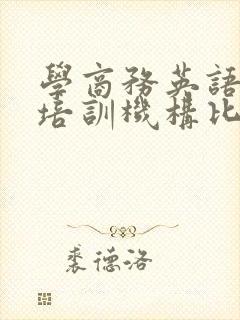 學商務英語
培訓機構比
裘德洛